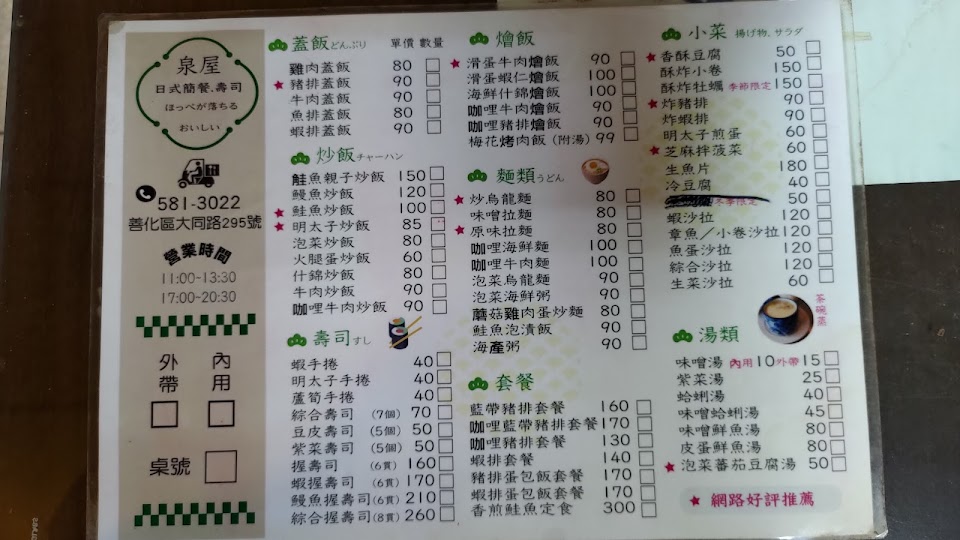 泉屋
日式簡餐.壽司
ほっぺが落ちる
おいしい
581-3022
善化區大同路295號
營業時間
11:00~13:30
17:00~20:30
外帶 內用
桌號
蓋飯どんぶり 單價 數量
雞肉蓋飯 80
豬排蓋飯 90
牛肉蓋飯 90
魚排蓋飯 80
蝦排蓋飯 90
炒飯チャーハン
鮭魚親子炒飯 150
鰻魚炒飯 120
鮭魚炒飯 100
明太子炒飯 85
泡菜炒飯 80
火腿蛋炒飯 60
什錦炒飯 80
牛肉炒飯 90
咖哩牛肉炒飯 90
壽司すし
蝦手捲 40
明太子手捲 40
蘆筍手捲 40
綜合壽司 (7個) 70
豆皮壽司 (5個) 50
紫菜壽司 (5個) 50
握壽司 (6貫) 160
蝦握壽司 (6貫) 170
鰻魚握壽司(6貫) 210
綜合握壽司(8貫) 260
燴飯
滑蛋牛肉燴飯 90
滑蛋蝦仁燴飯 100
海鮮什錦燴飯 100
咖哩牛肉燴飯 90
咖哩豬排燴飯 100
梅花烤肉飯(附湯) 99
麵類うどん
炒烏龍麵 80
味噌拉麵 80
原味拉麵 80
咖哩海鮮麵 100
咖哩牛肉麵 100
泡菜烏龍麵 90
泡菜海鮮粥 90
蘑菇雞肉蛋炒麵 80
鮭魚泡漬飯 90
海產粥 90
套餐
藍帶豬排套餐 160
咖哩藍帶豬排套餐 170
咖哩豬排套餐 130
蝦排套餐 140
豬排蛋包飯套餐 170
蝦排蛋包飯套餐 170
香煎鮭魚定食 300
小菜 揚げ物、サラダ
香酥豆腐 50
酥炸小卷 150
酥炸牡蠣 季節限定 150
炸豬排 90
炸蝦排 90
明太子煎蛋 60
芝麻拌菠菜 60
生魚片 180
冷豆腐 40
冬季限定 50
蝦沙拉 120
章魚／小卷沙拉 120
魚蛋沙拉 120
綜合沙拉 120
生菜沙拉 60
茶碗蒸
湯類
味噌湯 內用10 外帶15
紫菜湯 25
蛤蜊湯 40
味噌蛤蜊湯 45
味噌鮮魚湯 80
皮蛋鮮魚湯 80
泡菜蕃茄豆腐湯 50
★ 網路好評推薦